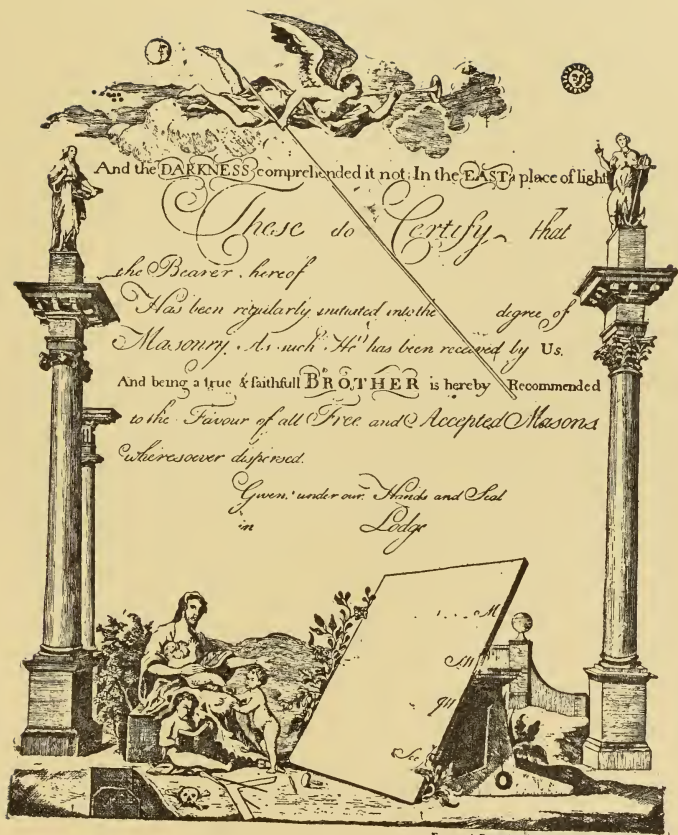 And the DARKNESS comprehended it not. In the EAST a place of light
These do Certify that
the Bearer hereof
Has been regularly initiated into the degree of
Masonry. As such He has been received by Us.
And being a true & faithfull BROTHER is hereby Recommended
to the Favour of all Free and Accepted Masons
wheresoever dispersed.
Given under our Hands and Seal
in Lodge
M